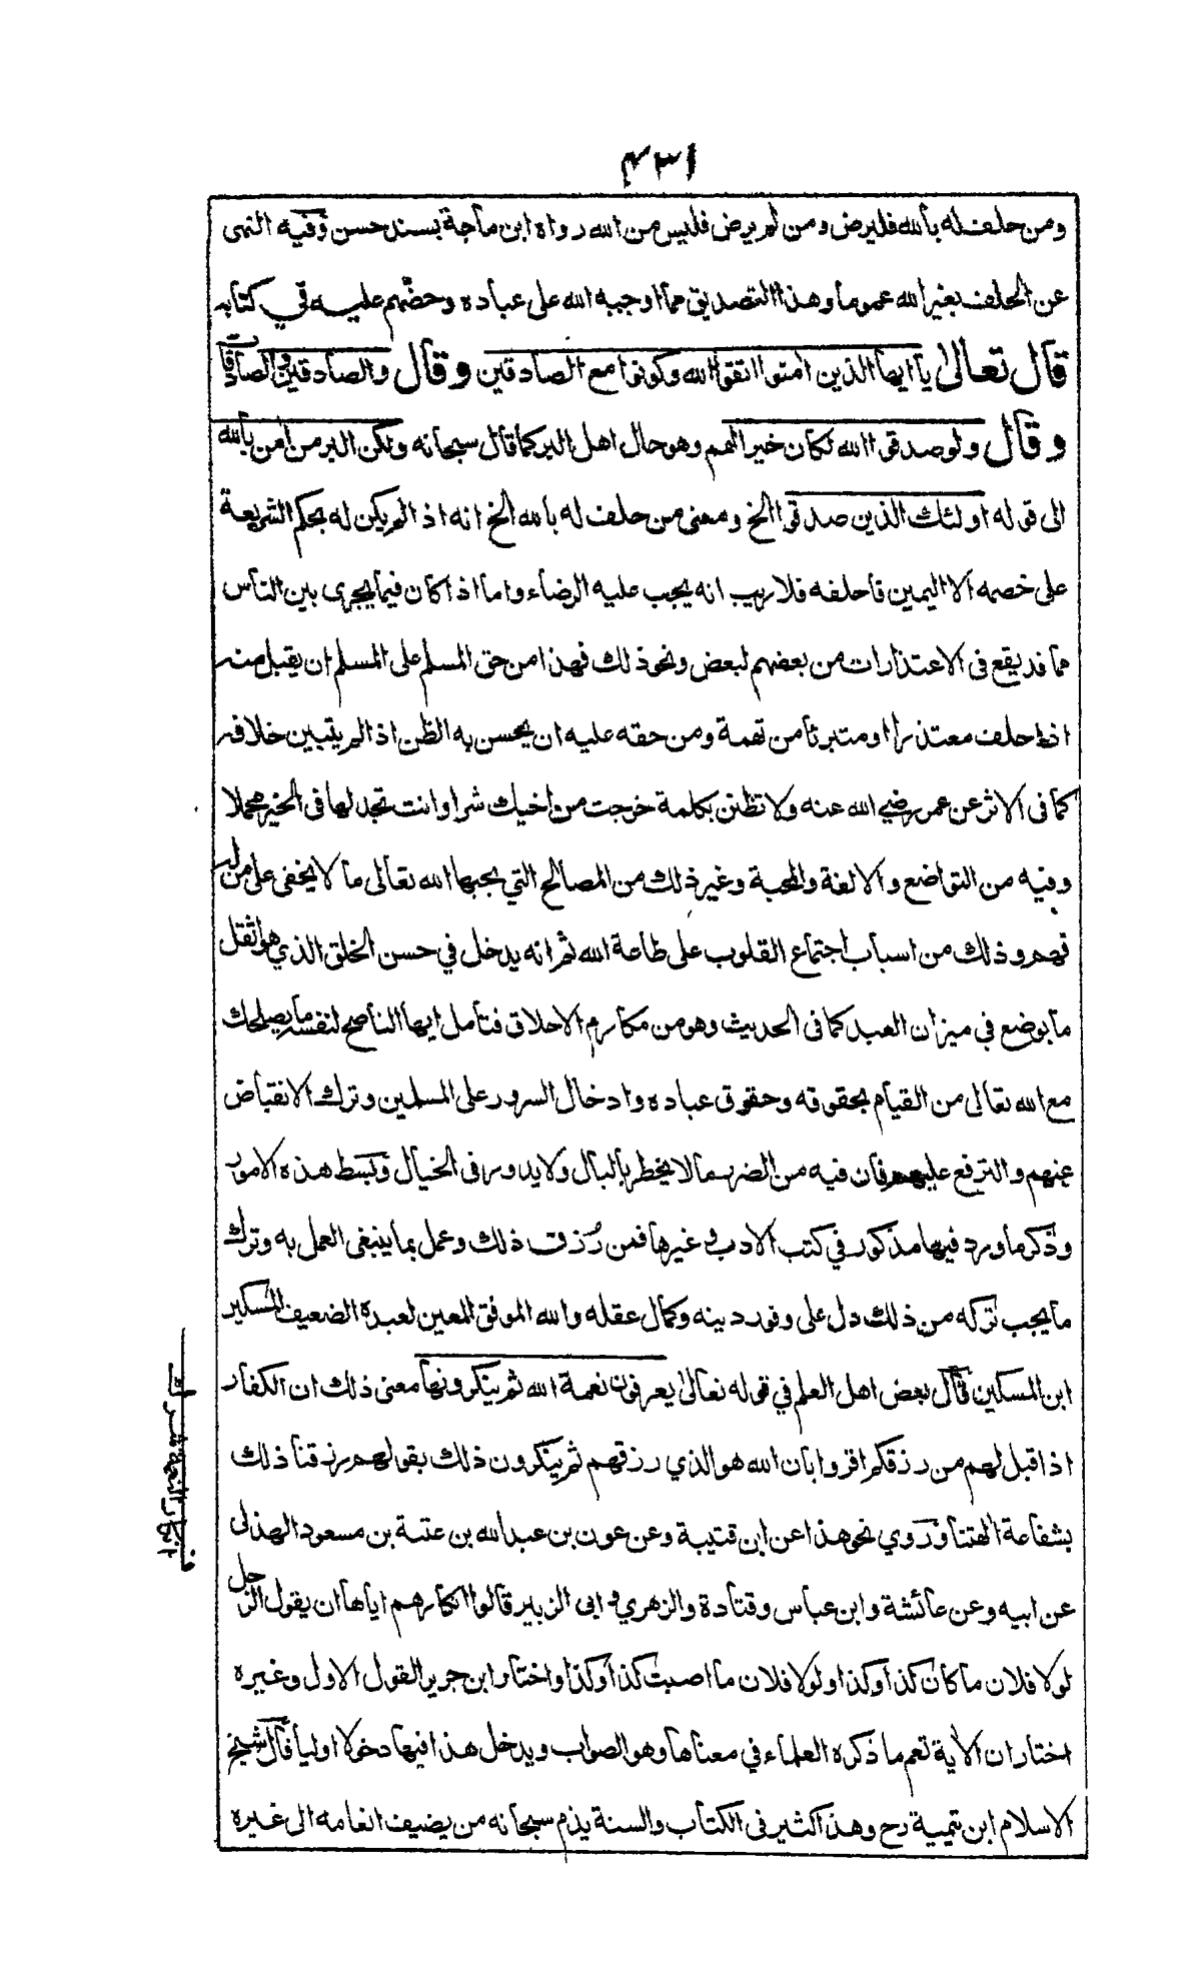 ٤٣١
ومن حلف له بالله فليرض ومن لم يرض فليس من الله رواه ابن ماجة بسند حسن وفيه النهى
عن الحلف بغير الله عموما وهذا التصديق مما اوجبه الله على عباده وحضهم عليه في كتابه
قال تعالى يا ايها الذين امنوا اتقوا الله وكونوا مع الصادقين وقال والصادقين والصادقات
وقال ولو صدقوا الله لكان خيرا لهم وهو حال اهل البر كما قال سبحانه ولكن البر من امن بالله
الى قوله اولئك الذين صدقوا الخ ومعنى من حلف له بالله الخ انه اذا لم يكن له بحكم الشريعة
على خصمه الا اليمين فاحلفه فلا ريب انه يجب عليه الرضاء واما اذا كان فيما يجرى بين الناس
مما قد يقع فى الاعتذارات من بعضهم لبعض ونحو ذلك فهذا من حق المسلم على المسلم ان يقبل منه
اذا حلف معتذرا او متبرئا من تهمة ومن حقه عليه ان يحسن به الظن اذا لم يتبين خلافه
كما فى الاثر عن عمر رضي الله عنه ولا تظنن بكلمة خرجت من اخيك شرا وانت تجد لها فى الخير محملا
وفيه من التواضع والالفة والمحبة وغير ذلك من المصالح التي يحبها الله تعالى ما لا يخفى على من له
فهم وذلك من اسباب اجتماع القلوب على طاعة الله ثم انه يدخل في حسن الخلق الذي هو اثقل
ما يوضع في ميزان العبد كما فى الحديث وهو من مكارم الاخلاق فتامل ايها الناصح لنفسه ما يصلحك
مع الله تعالى من القيام بحقوقه وحقوق عباده وادخال السرور على المسلمين وترك الانقباض
عنهم والترفع عليهم فان فيه من الضرر مالا يخطر بالبال ولا يدور فى الخيال وبسط هذه الامور
وذكر ما ورد فيها مذكور في كتب الادب وغيرها فمن رُزق ذلك وعمل بما ينبغى العمل به وترك
ما يجب تركه من ذلك دل على وفور دينه وكمال عقله والله الموفق المعين لعبده الضعيف المسكين
ابن المسكين قال بعض اهل العلم في قوله تعالى يعرفون نعمة الله ثم ينكرونها معنى ذلك ان الكفار
اذا قيل لهم من رزقكم اقروا بان الله هو الذي رزقهم ثم ينكرون ذلك بقولهم رزقنا ذلك
بشفاعة الهتنا وروي نحو هذا عن ابن قتيبة وعن عون بن عبدالله بن عتبة بن مسعود الهذلى
عن ابيه وعن عائشة وابن عباس وقتادة والزهري وابى الزبير قالوا انكارهم اياها ان يقول الرجل
لولا فلان ما كان كذا وكذا ولولا فلان ما اصبت كذا وكذا واختار ابن جرير القول الاول وغيره
اختار ان الاية تعم ما ذكره العلماء في معناها وهو الصواب ويدخل هذا فيها دخولا اوليا قال شيخ
الاسلام ابن تيمية رح وهذا كثير فى الكتاب والسنة يذم سبحانه من يضيف انعامه الى غيره
انكار النعمة شرك